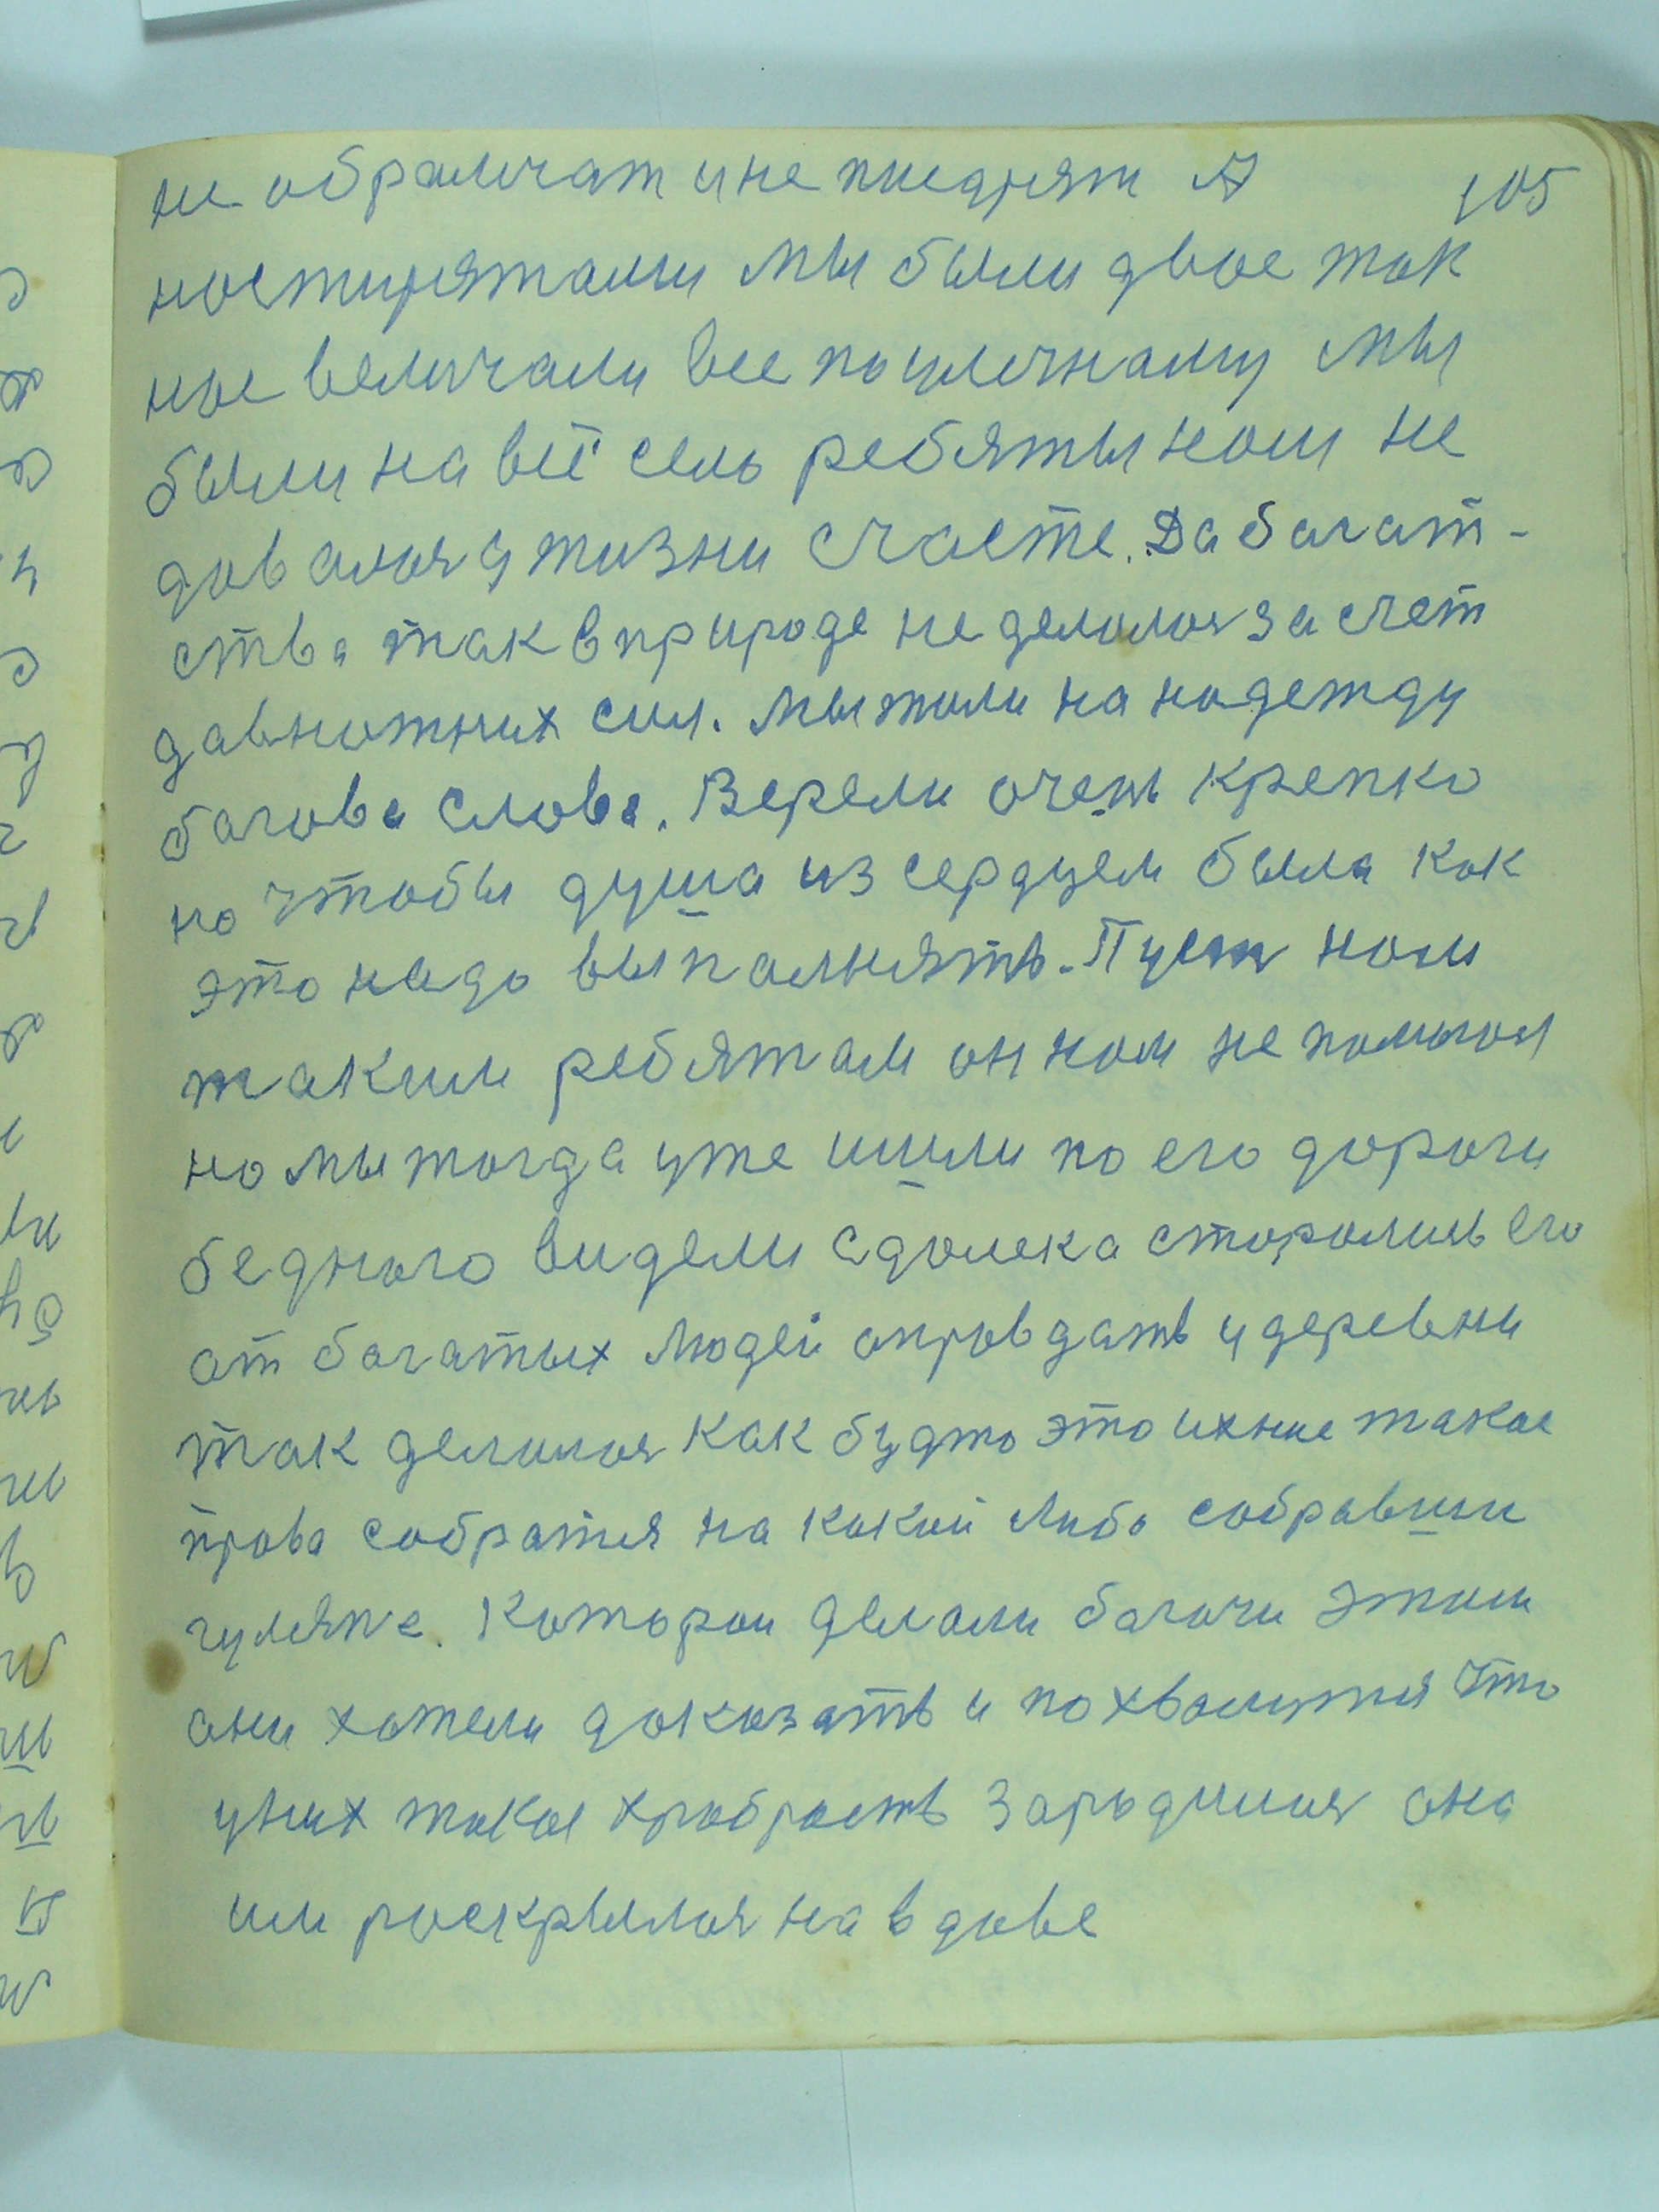 не обрамчат и не пиеднят А 105
ностирятами мы были двое так
нас величали все по уличнаму мы
были на всё село ребяты нам не
довалося у жизни счасте. Да багат-
ства так в природе не делалося за счет
давножних сил. Мы жили на надежду
багова слова. Верели очень крепко
но чтобы душа из сердцем была как
это надо выпалнять. Пуст нам
таким ребятам он нам не помагал
но мы тогда уже ишли по его дороги
бедного видели сдалека старались его
от багатых людей оправдать у деревни
так делалося как будто это ихние такое
право собратся на какой либо собравши
гулянке. Которои делали богачи этим
они хотели доказать и похвалится что
у них такая храбрость зародилися она
им роскрылося на вдове